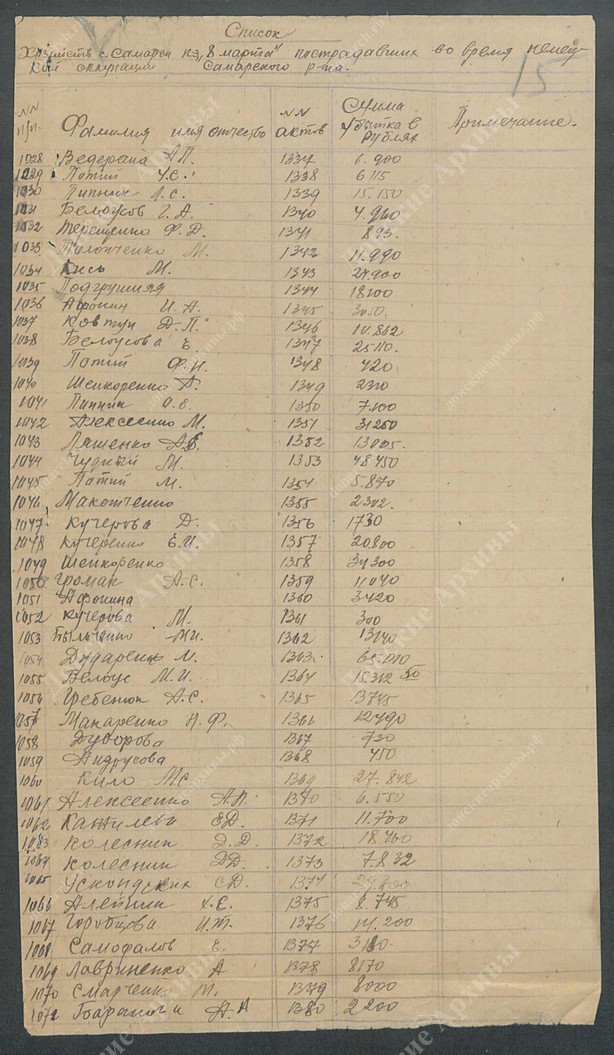 Список
Хозяйств с. Самарск кз "8 марта" пострадавших во время немец-
кой оккупации Самарского р-на.
15
NN п/п. Фамилия имя отчество NN актов Сумма убытка в рублях Примечание.
1028 А.П. 1337 6.900
1029 Потий 1338 6115
1030 Пипник 1339 15.150
1031 Белоусов Г.А. 1340
1032 Терещенко Ф.Д. 1341
1033 М. 1342 11.990
1034 Кись М. 1343 27.900
1035 1344 18200
1036 Афонин И.А. 1345
1037 Ковтун Д.П. 1346
1038 Белоусова Е. 1347 25110.
1039 Потий Ф.И. 1348 420
1040 Шейкоренко 1349
1041 Пипник 1350 7.100
1042 Алексеенко М. 1351 31250
1043 Ляшенко 1352
1044 Чудный М. 1353 48450
1045 Потий М. 1354 5.870
1046 Макотченко 1355 2302.
1047 Кучерова Д. 1356 1730
1048 Кучеренко Е.И. 1357 20.800
1049 Шейкоренко 1358 34300
1050 Громак А.С. 1359 11.040
1051 Афонина 1360 3420
1052 Кучерова М. 1361 300
1053 1362 13140
1054 Дударенко М. 1363.
1055 Белоус М.И. 1364 15.312
1056 Гребенюк А.С. 1365 13745
1057 Макаренко Н.Ф. 1366 12490
1058 Дуворова 1367 730
1059 Андрусова 1368 450
1060 Кило 1369 27.842
1061 Алексеенко А.П. 1370 6.550
1062 1371 11.700
1063 Колесник Д.Д. 1372 18.400
1064 Колесник Д.Д. 1373 7.832
1065 1374
1066 Алейник 1375 8.745
1067 Горобцова И.Т. 1376 14.200
1068 Самодалов Е. 1377
1069 Лавриненко А 1378 8170
1070 Смарченко М. 1379 8000
1072 А.А 1380 2200